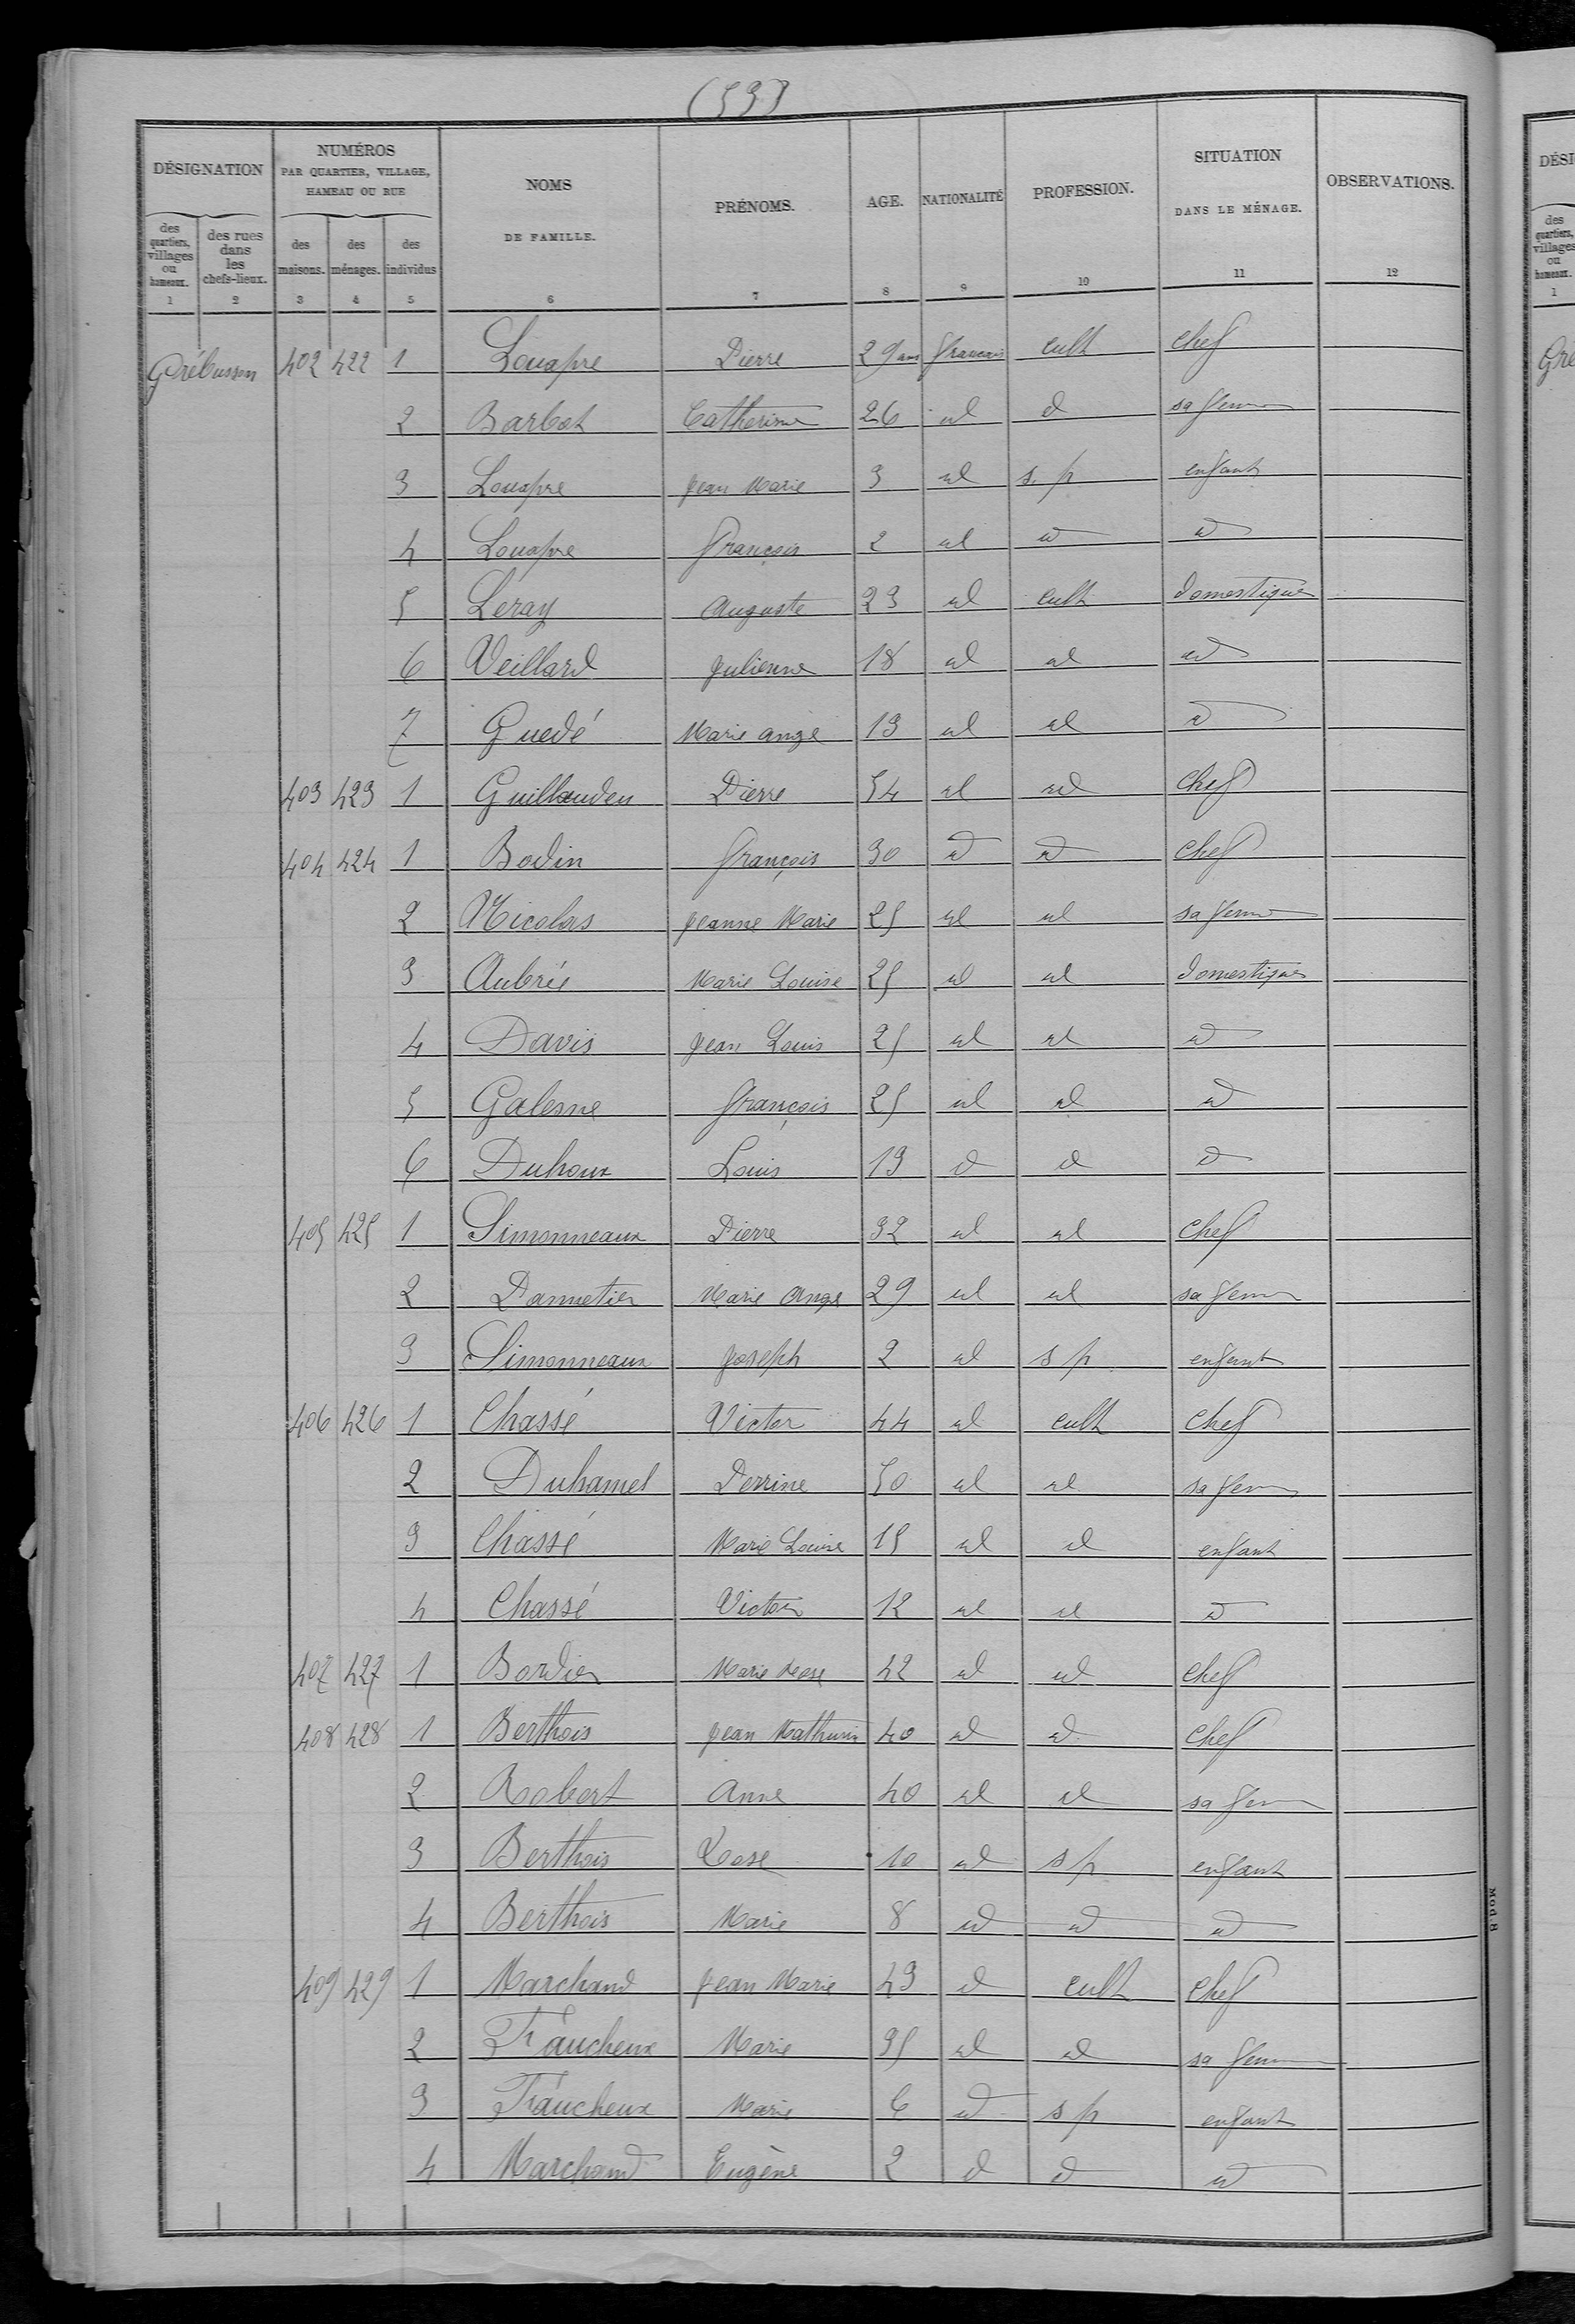 (53)
DÉSIGNATION NUMÉROS PAR QUARTIER, VILLAGE, HAMEAU OU RUE NOMS DE FAMILLE. PRÉNOMS. AGE. NATIONALITÉ PROFESSION. SITUATION DANS LE MÉNAGE. OBSERVATIONS.
des quartiers, villages ou hameaux. des rues dans les chefs-lieux. des maisons. des ménages. des individus
1 2 3 4 5 6 7 8 9 10 11 12
Grébusson 402 422 1 Louapre Pierre 29 ans français cult chef
2 Barbot Catherine 26 id id sa femme
3 Louapre Jean Marie 3 id s. p enfant
4 Louapre François 2 id id id
5 Leray Auguste 23 id cult domestique
6 Veillard Julienne 18 id id id
7 Guedé Marie Ange 13 id id id
403 423 1 Guillaudeu Pierre 54 id id chef
404 424 1 Bodin François 30 id id chef
2 Nicolas Jeanne Marie 25 id id sa femme
3 Aubrée Marie Louise 25 id id domestique
4 Davis Jean Louis 25 id id id
5 Galesne François 25 id id id
6 Duhoux Louis 13 id id id
405 425 1 Simonneaux Pierre 32 id id chef
2 Pannetier Marie Ange 29 id id sa femme
3 Simonneaux Joseph 2 id s p enfant
406 426 1 Chassé Victor 44 id cult chef
2 Duhamel Perrine 50 id id sa femme
3 Chassé Marie Louise 15 id id enfant
4 Chassé Victor 12 id id id
407 427 1 Bordier Marie Rose 42 id id chef
408 428 1 Berthois Jean Mathurin 40 id id chef
2 Robert Anne 40 id id sa femme
3 Berthois Rose 10 id s p enfant
4 Berthois Marie 8 id id id
409 429 1 Marchand Jean Marie 43 id cult chef
2 Fraucheux Marie 35 id id sa femme
3 Fraucheux Marie 6 id s p enfant
4 Marchand Eugène 2 id id id
Mod. 8
DÉSI
des quartiers, villages ou hameaux.
1
Gré